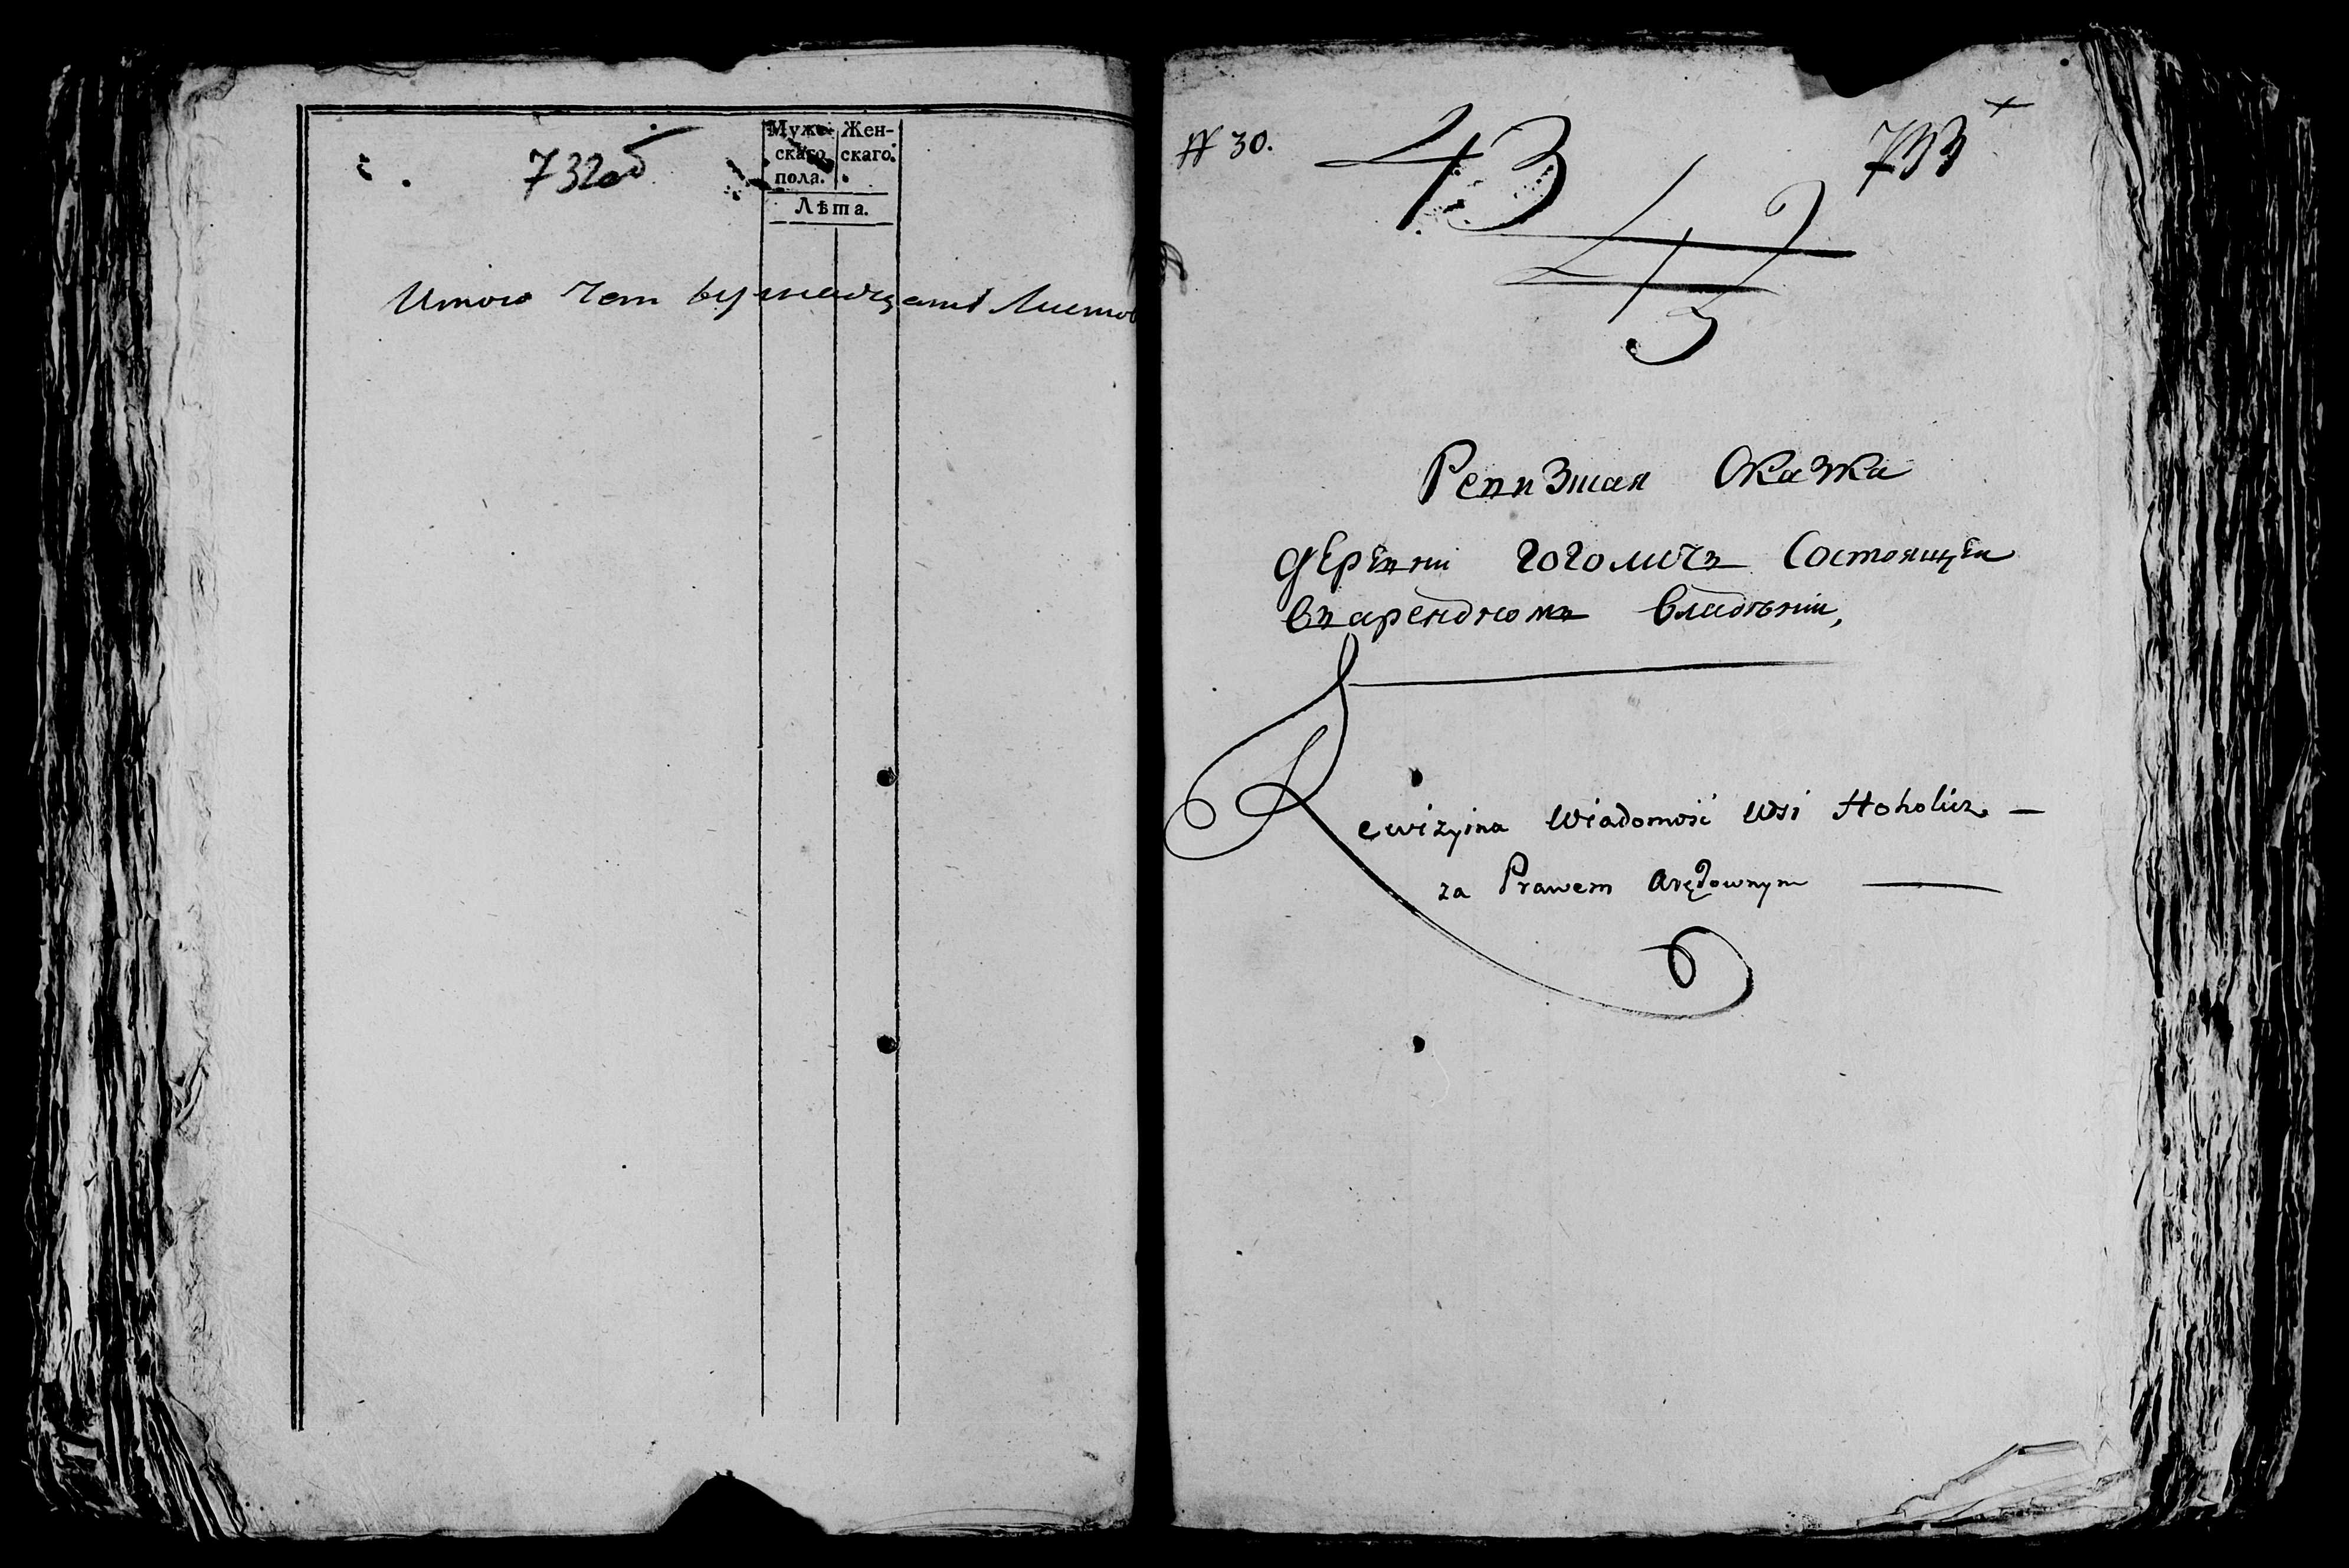 732об
Муже-
скаго
пола.
Жен-
скаго.
Лѣта.
Итого Чет вертнадцать Листов
№ 30.
43
733
Ревизная Сказка
дерѣвни Гоголичъ Состоящеи
въ арендномъ владѣнии,
Rewizyina Wiadomość Wsi Hoholicz —
za Prawem Arędownym